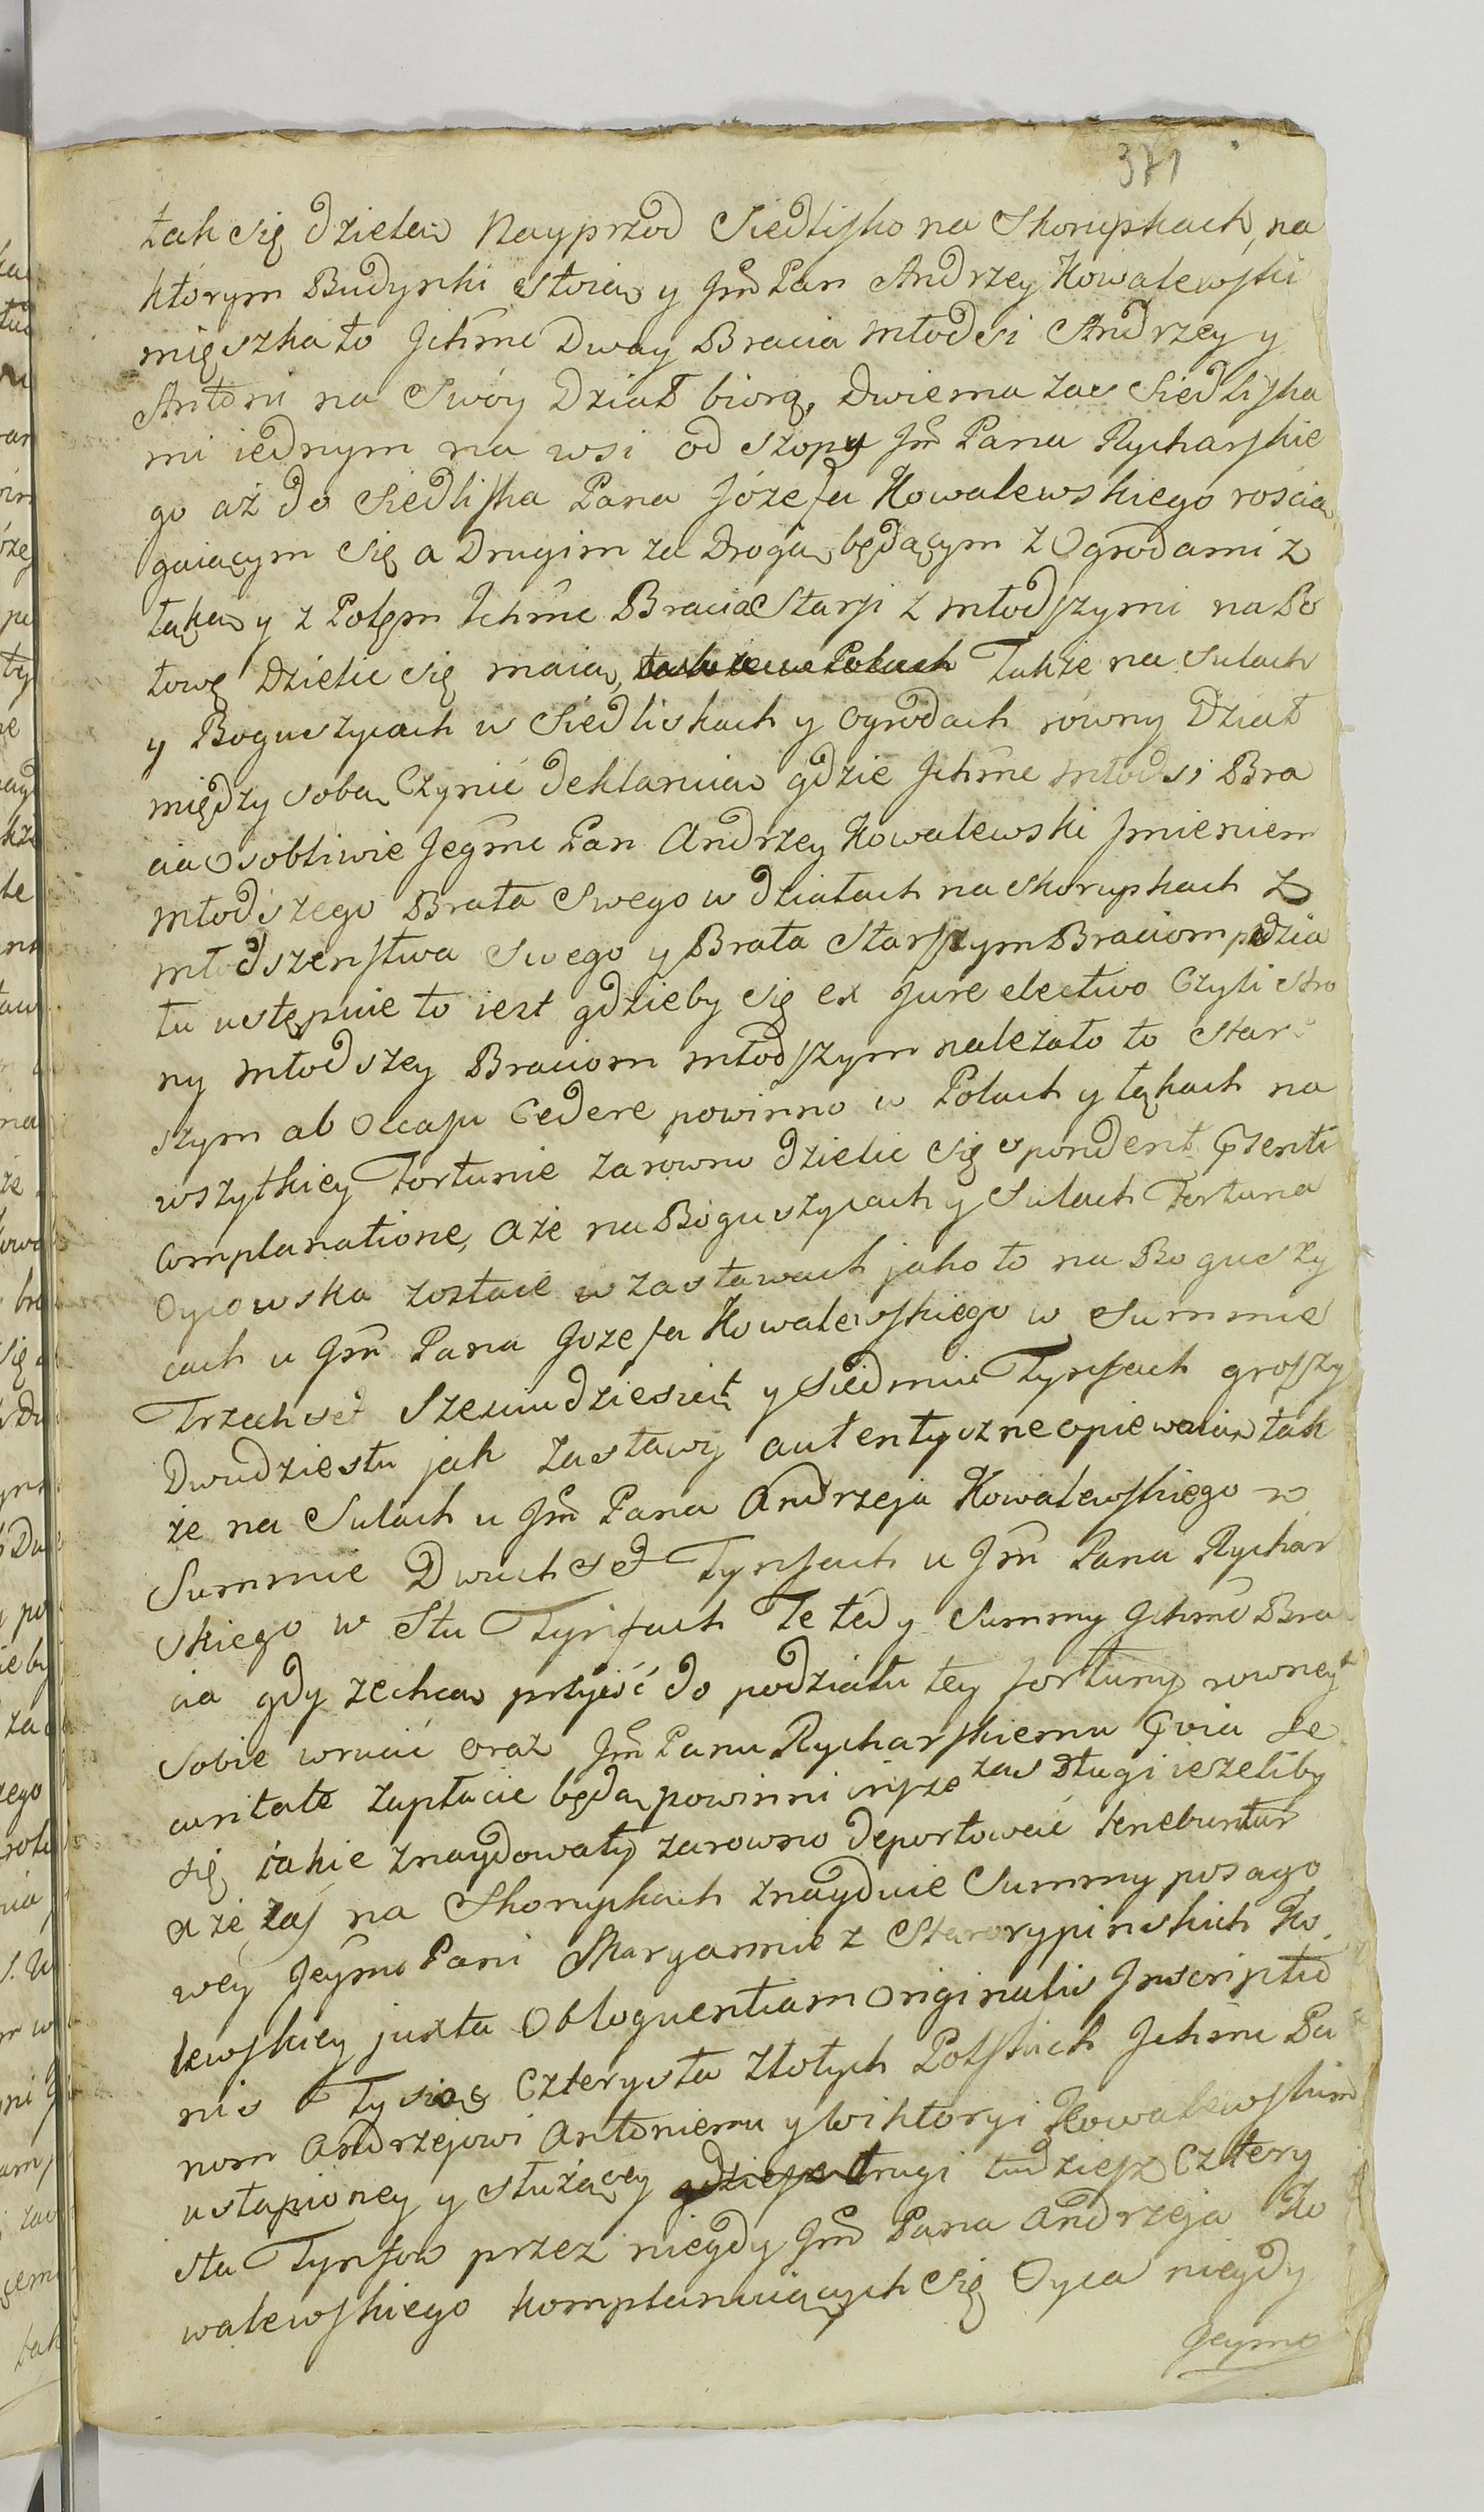 371
tak się dzielą Nayprzod Siedlisko na Skorupkach, na
którym Budynki stoią y Jmć Pan Andrzey Kowalewski
mięszka to Jchmć Dway Bracia młodsi Andrzey y
Antoni na Swóy Dział biorą, Dwiema zas Siedliska
mi iednym na wsi od szopy Jmć Pana Rycharskie
go aż do Siedliska Pana Józefa Kowalewskiego rościa
gaiącym się a Drugim za Drogą będącym z Ogrodami z
łąką y z Polem Jchmć Bracia Starsi z młodszymi na Po
łowę Dzielic się maią, także w Polach Także na Sulach
y Boguszycach w Siedliskach y Ogrodach równy Dział
między sobą Czynić deklaruią gdzie Jchmć młodsi Bra
cia Osobliwie Jegmć Pan Andrzey Kowalewski Jmieniem
młodszego Brata Swego w działach na Skorupkach z
młodszenstwa Swego y Brata Starszym Braciom podzia
łu ustępuie to iest gdzieby się ex Jure electivo Czyli stro
ny młodszey Braciom młodszym należało to Star
szym ab Occasu Cedere powinno w Polach y łąkach na
wszytkiey Fortunie zarowno dzielic się spondent Pnti
Complanatione, aże na Boguszycach y Sulach Fortuna
Oycowska zostaie w zastawach jako to na Boguszy
cach u Jmć Pana Jozefa Kowalewskiego w Summie
Trzechset Szesciudziesiąt y Siedmiu Tynfach groszy
Dwudziestu jak zastawy autentyczne opiewaią tak
że na Sulach u Jmć Pana Andrzeja Kowalewskiego w
Summie Dwuch Set Tynfach u Jmć Pana Rychar
skiego w Stu Tynfach Te tedy Summy Jchmć Bra
cia gdy zechcą przyiść do podziału tey fortuny rowney
Sobie wrucić oraz Jmć Panu Rycharskiemu Qvia Se
curitate zapłacic będą powinni insze zas Długi ieżeliby
się iakie znaydowały zarowno deportować tenebuntur
a że zaś na Skorupkach znayduie Summy posago
wéy Jeymć Pani Maryannie z Starorypinskich Ko
lewskiey juxta Obloquentiam Originalis Jnscriptio
nis Tysiąc Czterysta Złotych Polskich Jchmć Pa
nom Andrzejowi Antoniemu y Wiktoryi Kowalewskim
ustąpioney y służącey gdziesz Drugi tudziesz Cztery
sta Tynfow przez niegdy Jmć Pana Andrzeja Ko
walewskiego komplanuiących się Oyca niegdy
Jeymć